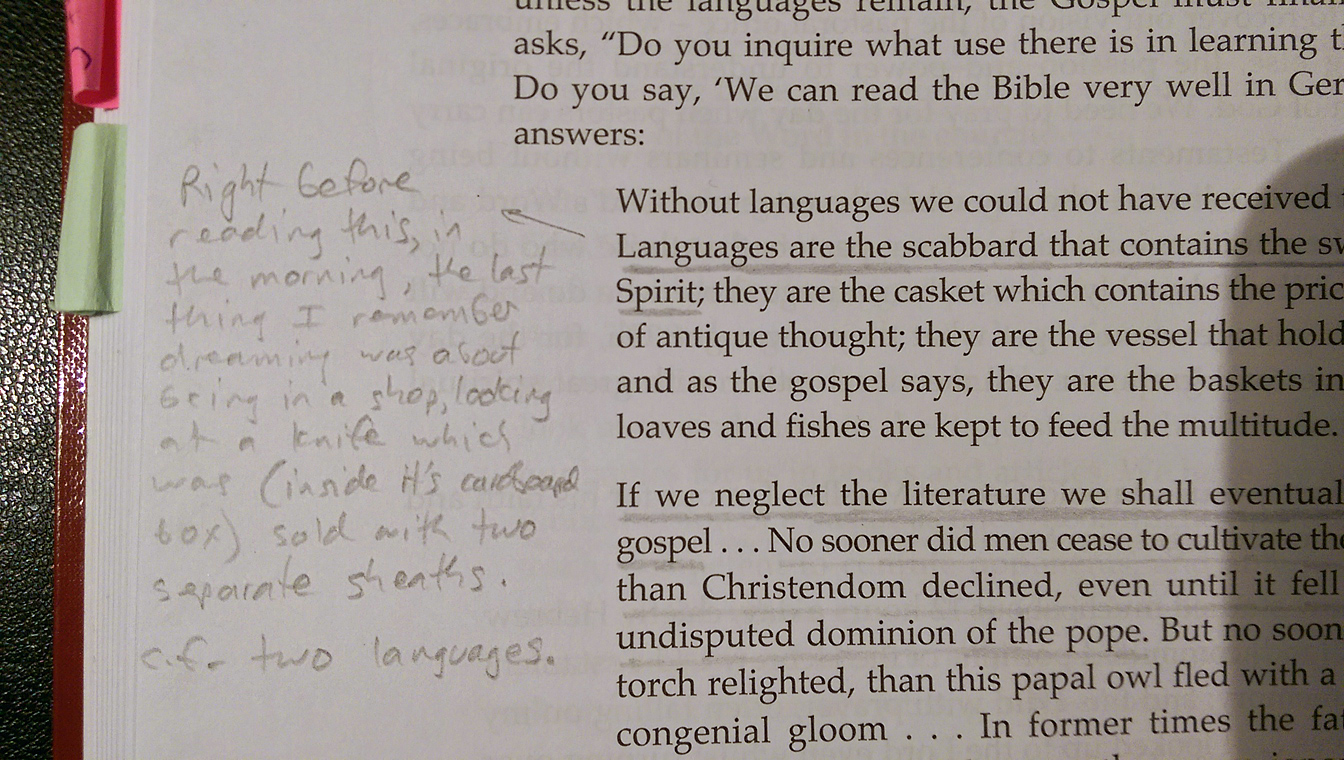 unless the languages remain, the Gospel must
asks, “Do you inquire what use there is in learning
Do you say, ‘We can read the Bible very well in Ger
answers:
Right before
reading this, in
the morning, the last
thing I remember
dreaming was about
being in a shop, looking
at a knife which
was (inside it's cardboard
box) sold with two
separate sheaths.
c.f. two languages.
Without languages we could not have received
Languages are the scabbard that contains the sw
Spirit; they are the casket which contains the pric
of antique thought; they are the vessel that hold
and as the gospel says, they are the baskets in
loaves and fishes are kept to feed the multitude.
If we neglect the literature we shall eventual
gospel . . . No sooner did men cease to cultivate the
than Christendom declined, even until it fell
undisputed dominion of the pope. But no soon
torch relighted, than this papal owl fled with a
congenial gloom . . . In former times the fat